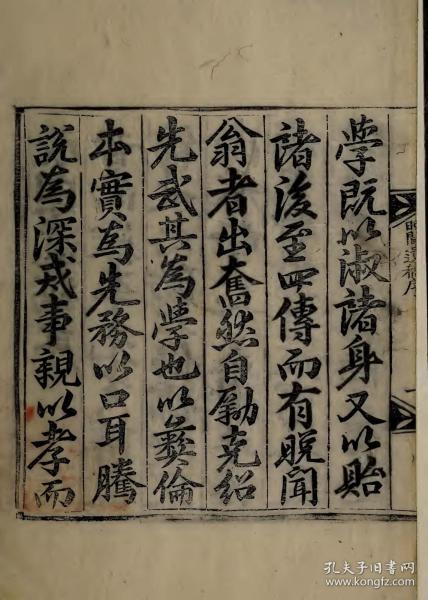 學既以淑諸身又以貽
諸後至四傳而有晚聞
翁者出奮然自勵克紹
先武其為學也以彝倫
本實為先務以口耳騰
說為深戒事親以孝而
晚聞遺稿序
孔夫子旧书网
www.kongfz.com